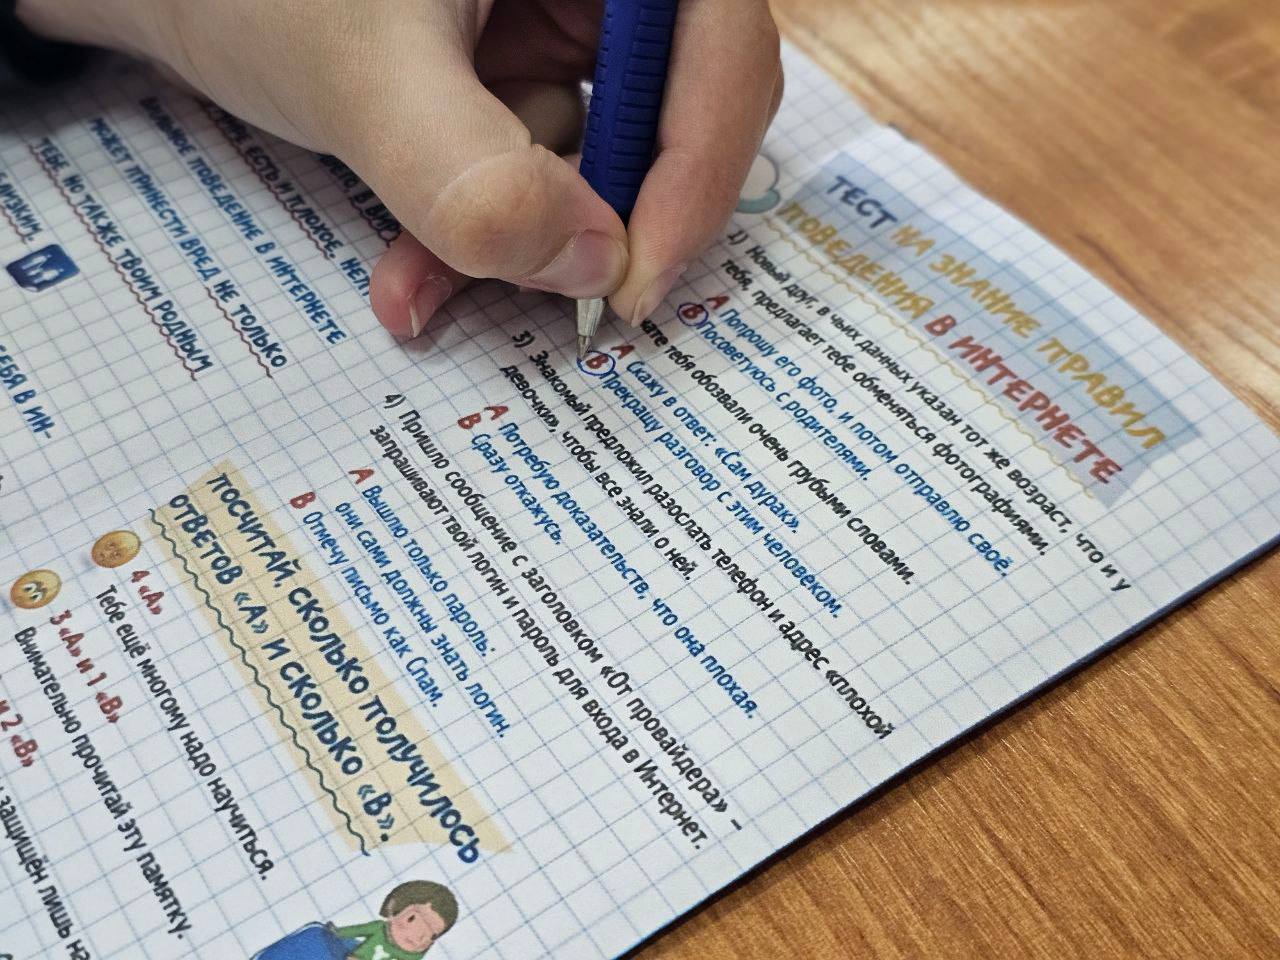 ТЕСТ НА ЗНАНИЕ ПРАВИЛ
ПОВЕДЕНИЯ В ИНТЕРНЕТЕ
1) Новый друг, в чьих данных указан тот же возраст, что и у
тебя, предлагает тебе обменяться фотографиями.
А Попрошу его фото, и потом отправлю своё.
В Посоветуюсь с родителями.
чате тебя обозвали очень грубыми словами.
А Скажу в ответ: «Сам дурак».
В Прекращу разговор с этим человеком.
3) Знакомый предложил разослать телефон и адрес «плохой
девочки», чтобы все знали о ней.
А Потребую доказательств, что она плохая.
В Сразу откажусь.
4) Пришло сообщение с заголовком «От провайдера» –
запрашивают твой логин и пароль для входа в Интернет.
А Вышлю только пароль:
они сами должны знать логин.
В Отмечу письмо как Спам.
ПОСЧИТАЙ, СКОЛЬКО ПОЛУЧИЛОСЬ
ОТВЕТОВ «А» И СКОЛЬКО «В».
4 «А»
Тебе ещё многому надо научиться.
3 «А» и 1 «В»
Внимательно прочитай эту памятку.
и 2 «В»
защищён лишь на
ЕСТЬ И ПЛОХОЕ.
ПОВЕДЕНИЕ В ИНТЕРНЕТЕ
МОЖЕТ ПРИНЕСТИ ВРЕД НЕ ТОЛЬКО
ТЕБЕ, НО ТАКЖЕ ТВОИМ РОДНЫМ
БЛИЗКИМ.
СЕБЯ В ИН-